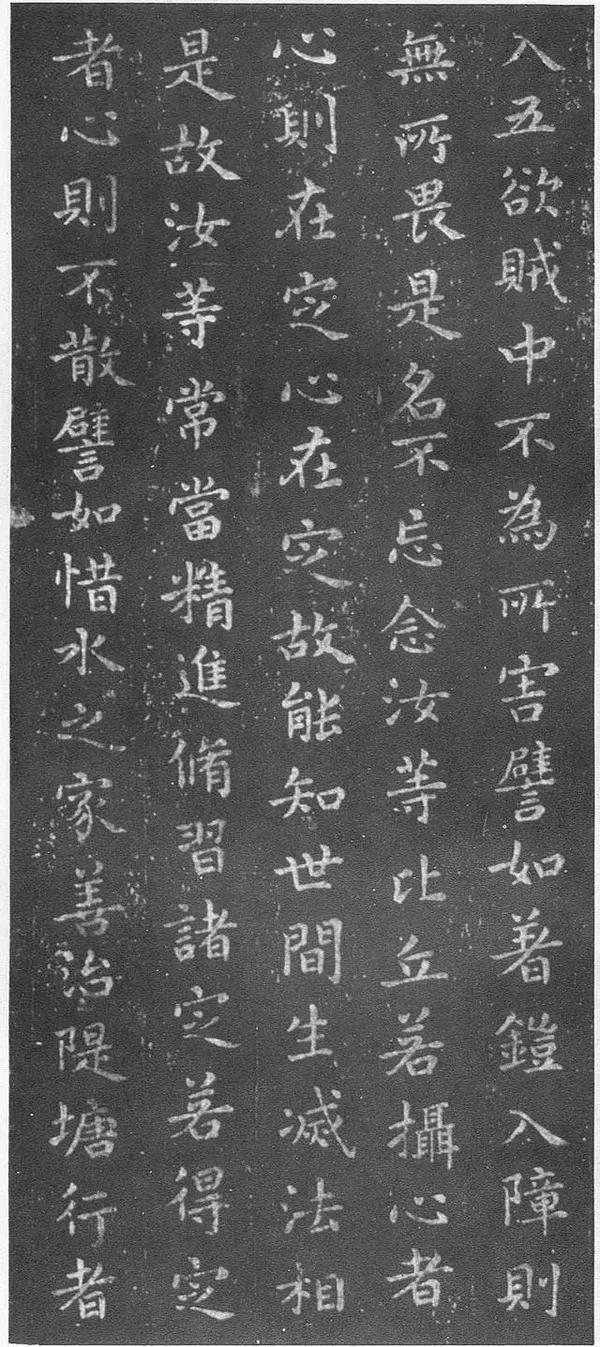 入五欲賊中不為所害譬如著鎧入障則
無所畏是名不忘念汝等比丘若攝心者
心則在定心在定故能知世間生滅法相
是故汝等常當精進脩習諸定若得定
者心則不散譬如惜水之家善治隄塘行者